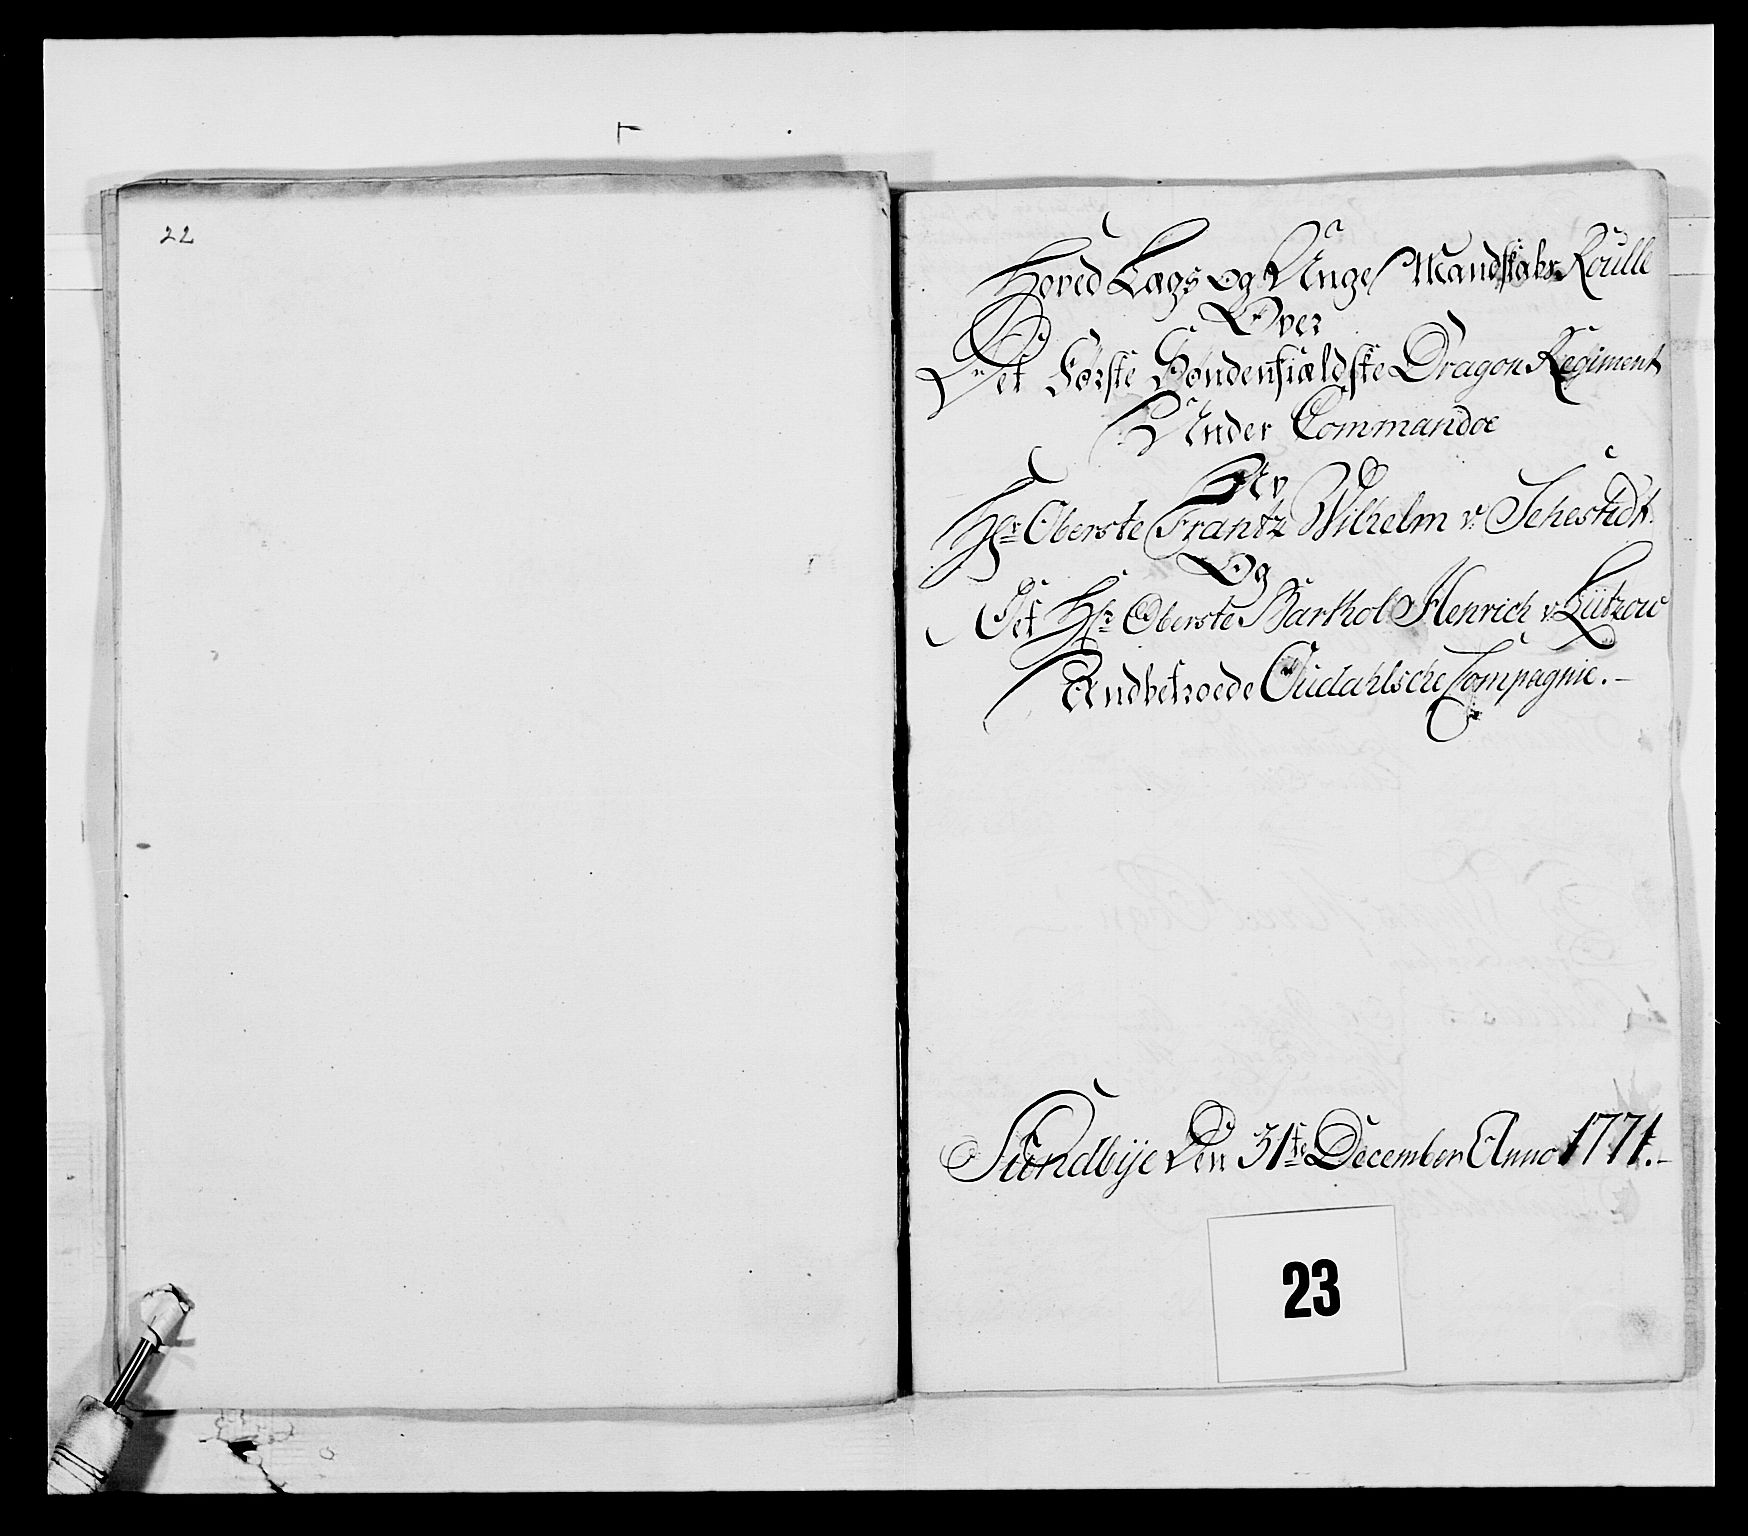 22
Hoved Lægs og Unge Mandskabs Roulle
Over
Det Første Søndenfieldske Dragon Regiment
Under Commandoe
Av
Hr Oberste Frantz Wilhelm v. Sehestedt
Og
Det Hr Oberste Barthol Henrich v. Lützow
Andbetroede Oudahlsche Compagnie.-
Sundbÿe Den 31te December Anno 1771.-
23